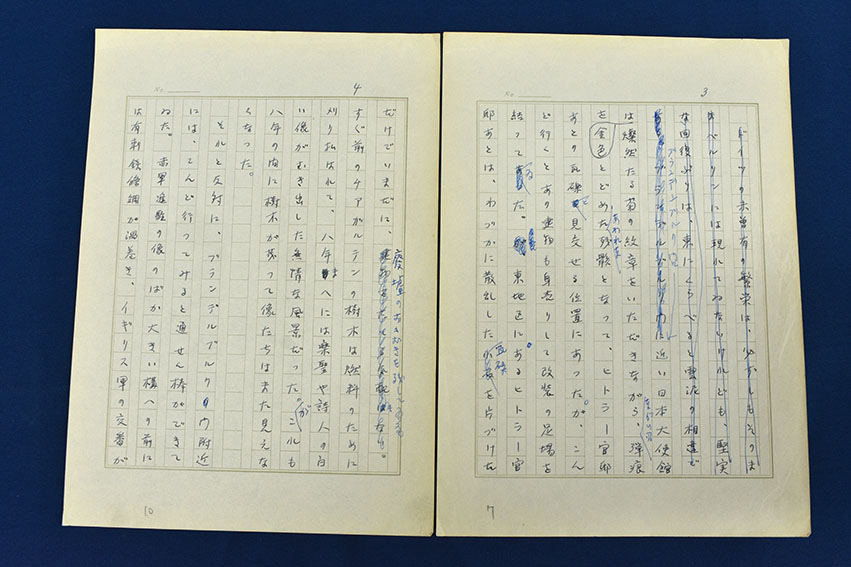 3
ドイツの未曽有の繁栄は、必ずしもそのま
まベルリンには現れてゐないけれども、堅実
な回復ぶりは、東にくらべると雲泥の相違で
ブランデンブルク門
に近い日本大使館
は燦然たる菊の紋章をいただきながら、弾痕
を金色とどめた残骸となって、ヒトラー官邸
あはれな
あとの瓦礫と見交せる位置にあった。が、こん
ど行くとあの建物も身売りして改装の足場を
結ってゐた。東地区にあるヒトラー官
邸あとは、わづかに散乱した瓦礫を片づけた
7
4
だけでいまだに、廃墟のおもむきを残してゐる
すぐ前のチアガルテンの樹木は燃料のために
刈り払はれて、八年まへには楽聖や詩人の白
い像がむき出した無情な風景だったが、これも
八年の間に樹木が茂って像たちはまた見えな
くなった。
それと反対に、ブランデルブルクの門附近
には、こんど行ってみると通せん棒ができて
ゐた。赤軍進駐の像のばか大きい構への前に
は有刺鉄條網が渦巻き、イギリス軍の交番が
10